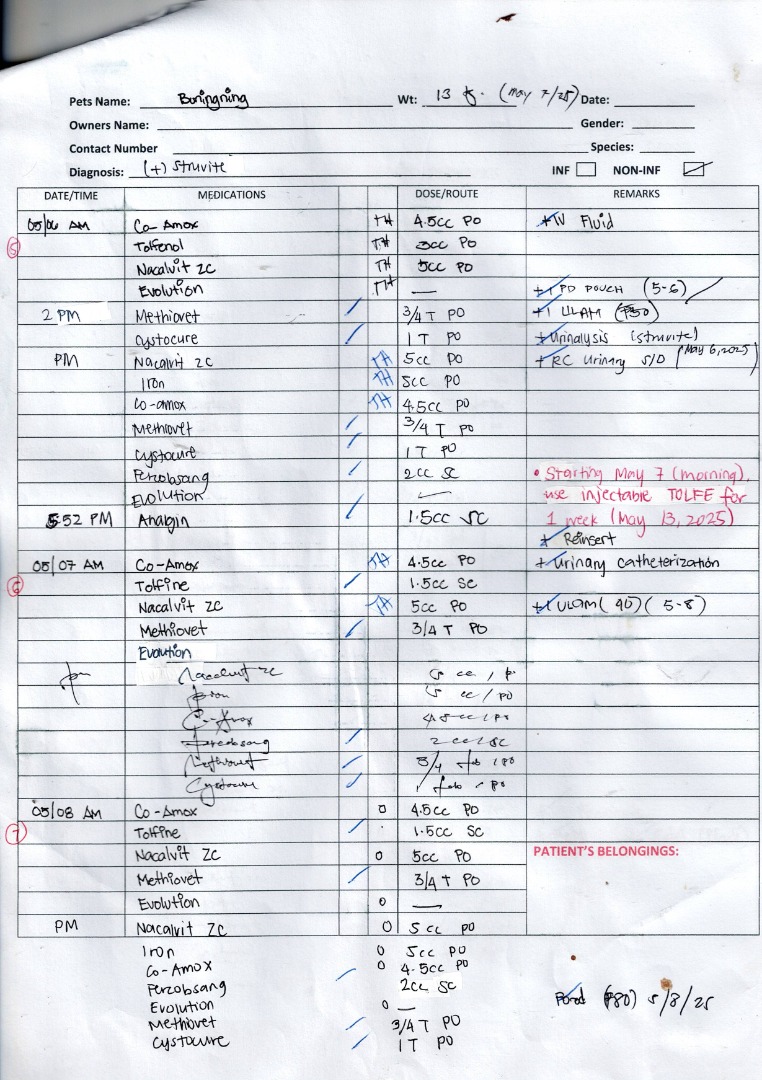 Pets Name: Buningning Wt: 13 (May 7/25) Date:
Owners Name: Gender:
Contact Number Species:
Diagnosis: (+) Struvite INF NON-INF
DATE/TIME MEDICATIONS DOSE/ROUTE REMARKS
05/06 AM Co-Amox TH 4.5cc PO + IV Fluid
5 Tolfenol TH 3cc PO
Nacalvit ZC TH 5cc PO
Evolution TH — +1 PD POUCH (5-6)
2 PM Methiovet 3/4 T PO +1 ULAM (₱50)
Cystocure 1 T PO + Urinalysis (struvite)
PM Nacalvit ZC TH 5cc PO + RC Urinary S/D (May 6, 2025)
Iron TH 5cc PO
Co-amox TH 4.5cc PO
Methiovet 3/4 T PO
Cystocure 1T PO
Perzobsang 2cc SC • Starting May 7 (morning),
Evolution use injectable TOLFE for
5:52 PM Analgin 1.5cc SC 1 week (May 13, 2025)
+ Reinsert
05/07 AM Co-Amox TH 4.5cc PO + Urinary catheterization
6 Tolfine 1.5cc SC
Nacalvit ZC TH 5cc PO +1 ULAM (40) (5-8)
Methiovet 3/4 T PO
Evolution
pm Nacalvit ZC 5 cc / po
Iron 5 cc / PO
Co-Amox 4.5 cc / po
2 cc / SC
Methiovet 3/4 tab / po
Cystocure 1 tab / po
05/08 AM Co-Amox 0 4.5cc PO
7 Tolfine 1.5cc SC
Nacalvit ZC 0 5cc PO PATIENT'S BELONGINGS:
Methiovet 3/4 T PO
Evolution 0 —
PM Nacalvit ZC 0 5cc PO
Iron 0 5cc PO
Co-Amox 0 4.5cc PO
Perzobsang 2cc SC
Evolution 0 — (₱80) 5/8/25
Methiovet 3/4 T PO
Cystocure 1T PO